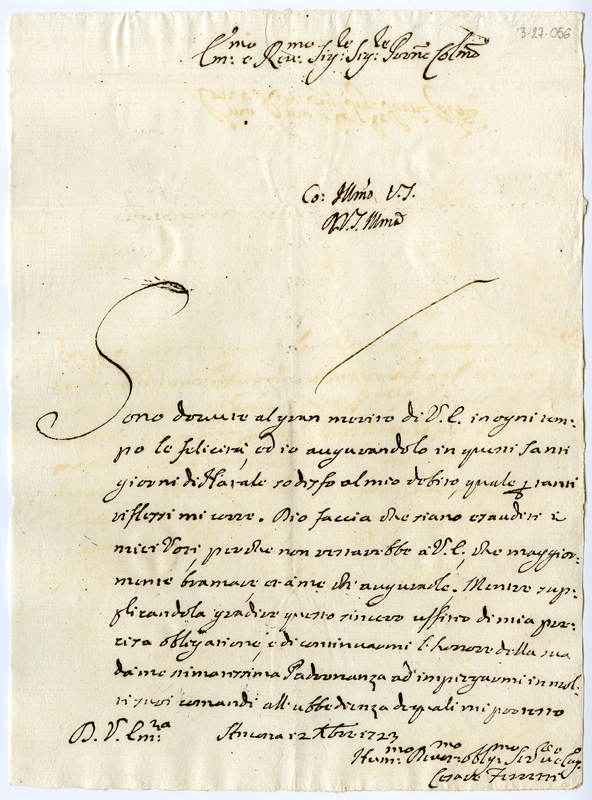 3-27-056
Em:mo e Rev:mo Sig:re Sig:re Prone Colmo
Sono dovute al gran merito di V. E. in ogni tem-
po le felicità, ed io augurandole in questi santi
giorni di Natale sodisfo al mio debito, quale p tanti
riflessi mi corre. Dio faccia che siano esauditi i
miei Voti perche non restarebbe a V. E., che maggior-
mente bramare et a me che augurarle. Mentre sup-
plicandola gradire questo sincero uffitio di mia per-
obligatione, e di continuarmi l'honore della sua
da me stimatissima Padronanza ad impiegarmi in mol-
ti suoi comandi all'ubbedienza de quali mi protesto
D. V. Em:za
Ancona 12 Xbre 1723
Hum:mo Devot:mo Oblig:mo
Cesare